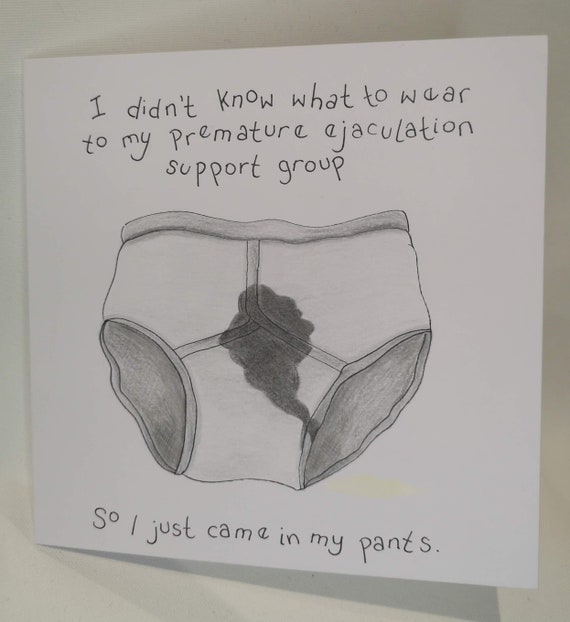 I didn't know what to wear
to my premature ejaculation
support group
So I just came in my pants.